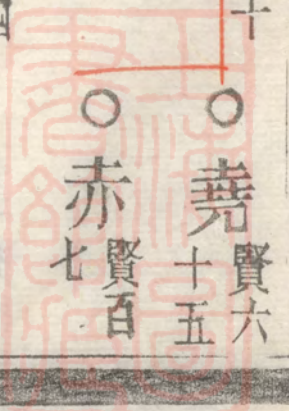 ○堯賢六十五
○赤賢百七